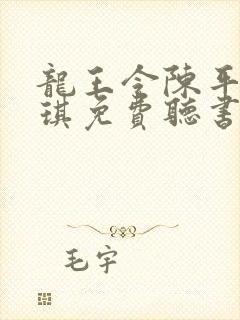 龍王令陳平
琪免費聽書
毛宇